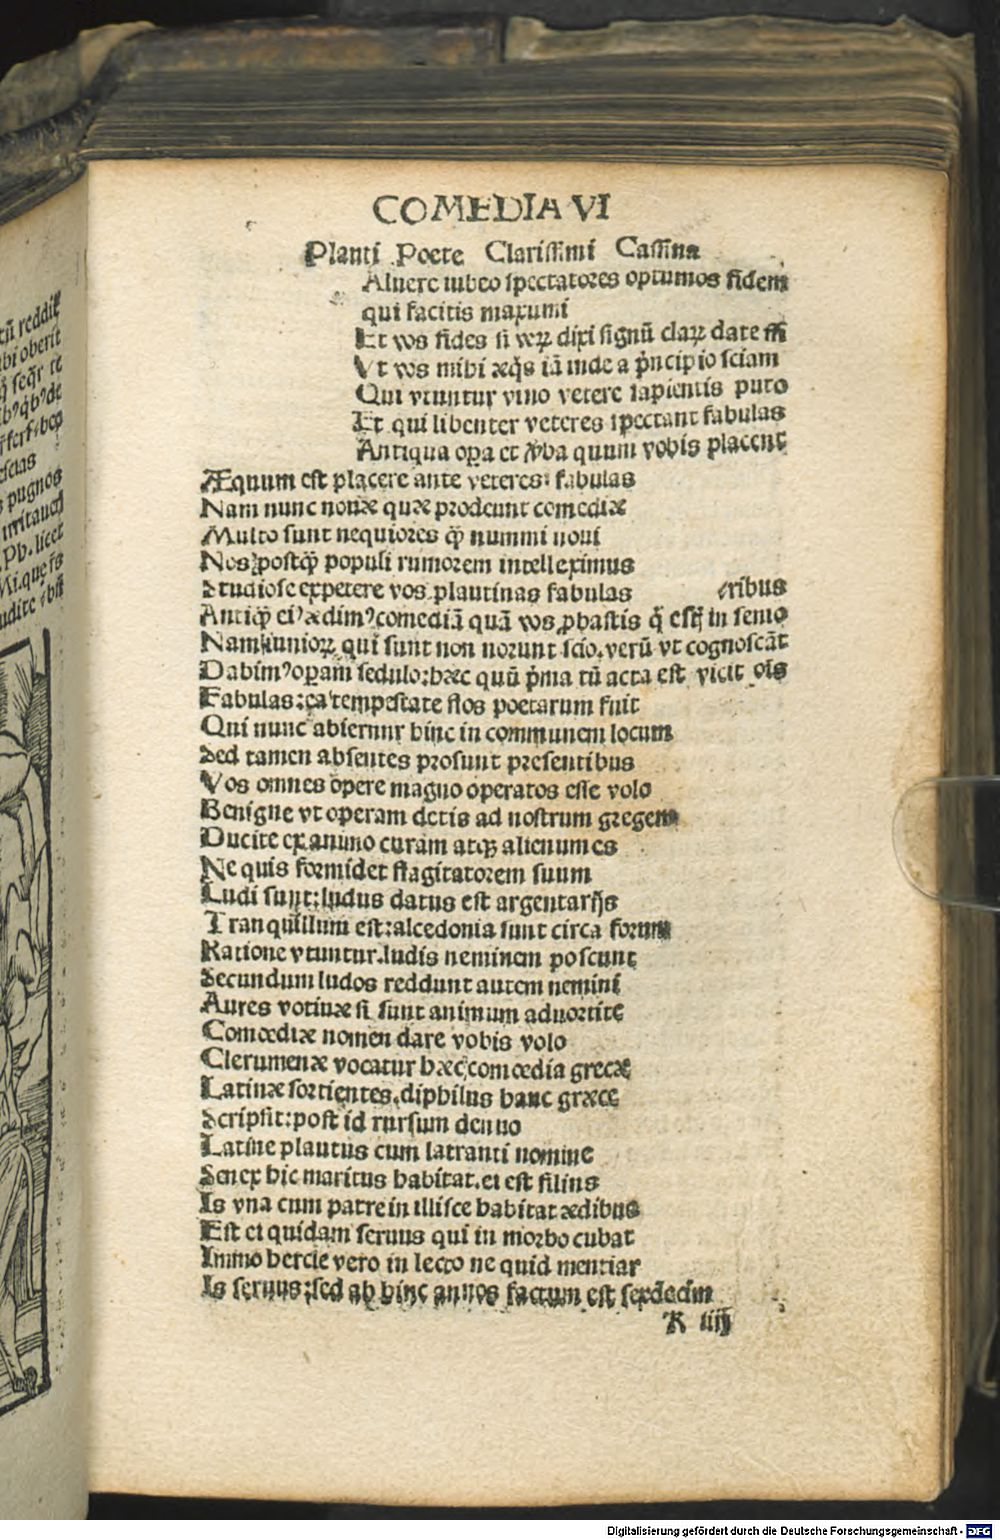 tũ reddit
ubi oberit
q̃ seq̃r te
pugnos
irritauerĩ
Pb. licet
Mi. que r̃s
COMEDIA VI
Planti Poete Clarissimi Cassina
Aluere iubeo spectatores optumos fidem
qui facitis maxumi
Et vos fides si veꝝ dixi signũ claꝝ date m̃
Vt vos mihi æq̃s iã inde a p̃ncipio sciam
Qui vtuntur vino vetere sapientis puto
Et qui libenter veteres spectant fabulas
Antiqua oꝑa et v̾ba quum vobis placent
Æquum est placere ante veteres: fabulas
Nam nunc nouæ quæ prodeunt comediæ
Multo sunt nequiores q̃ꝫ nummi noui
Nos postq̃ꝫ populi rumorem intelleximus
Studiose expetere vos plautinas fabulas (ribus
Antiq̃ꝫ eiꝰ ædimꝰ comediã quã vos ꝓbastis q̃ estꝫ in senio
Nam iunioꝝ qui sunt non norunt scio. verũ vt cognoscãt
Dabimꝰ oꝑam sedulo: hæc quũ p̃ma tũ acta est vicit oĩs
Fabulas: ea tempestate flos poetarum fuit
Qui nunc abierunr hinc in communem locum
Sed tamen absentes prosunt presentibus
Vos omnes opere magno operatos esse volo
Benigne vt operam detis ad nostrum gregem
Ducite ex animo curam atqꝫ alienum es
Ne quis formidet flagitatorem suum
Ludi sunt: ludus datus est argentarijs
Tranquillum est: alcedonia sunt circa forum
Ratione vtuntur. ludis neminem poscunt
Secundum ludos reddunt autem nemini
Aures votiuæ si sunt animum aduortite
Comœdiæ nomen dare vobis volo
Clerumenæ vocatur hæc comœdia grecæ
Latinæ sortientes. diphilus hanc græce
Scripsit: post id rursum denuo
Latine plautus cum latranti nomine
Senex hic maritus habitat. ei est filius
Is vna cum patre in illisce habitat ædibus
Est ei quidam seruus qui in morbo cubat
Immo hercle vero in lecto ne quid mentiar
Is seruus: sed ab hinc annos factum est sexdecim
K iiij
Digitalisierung gefördert durch die Deutsche Forschungsgemeinschaft - DFG